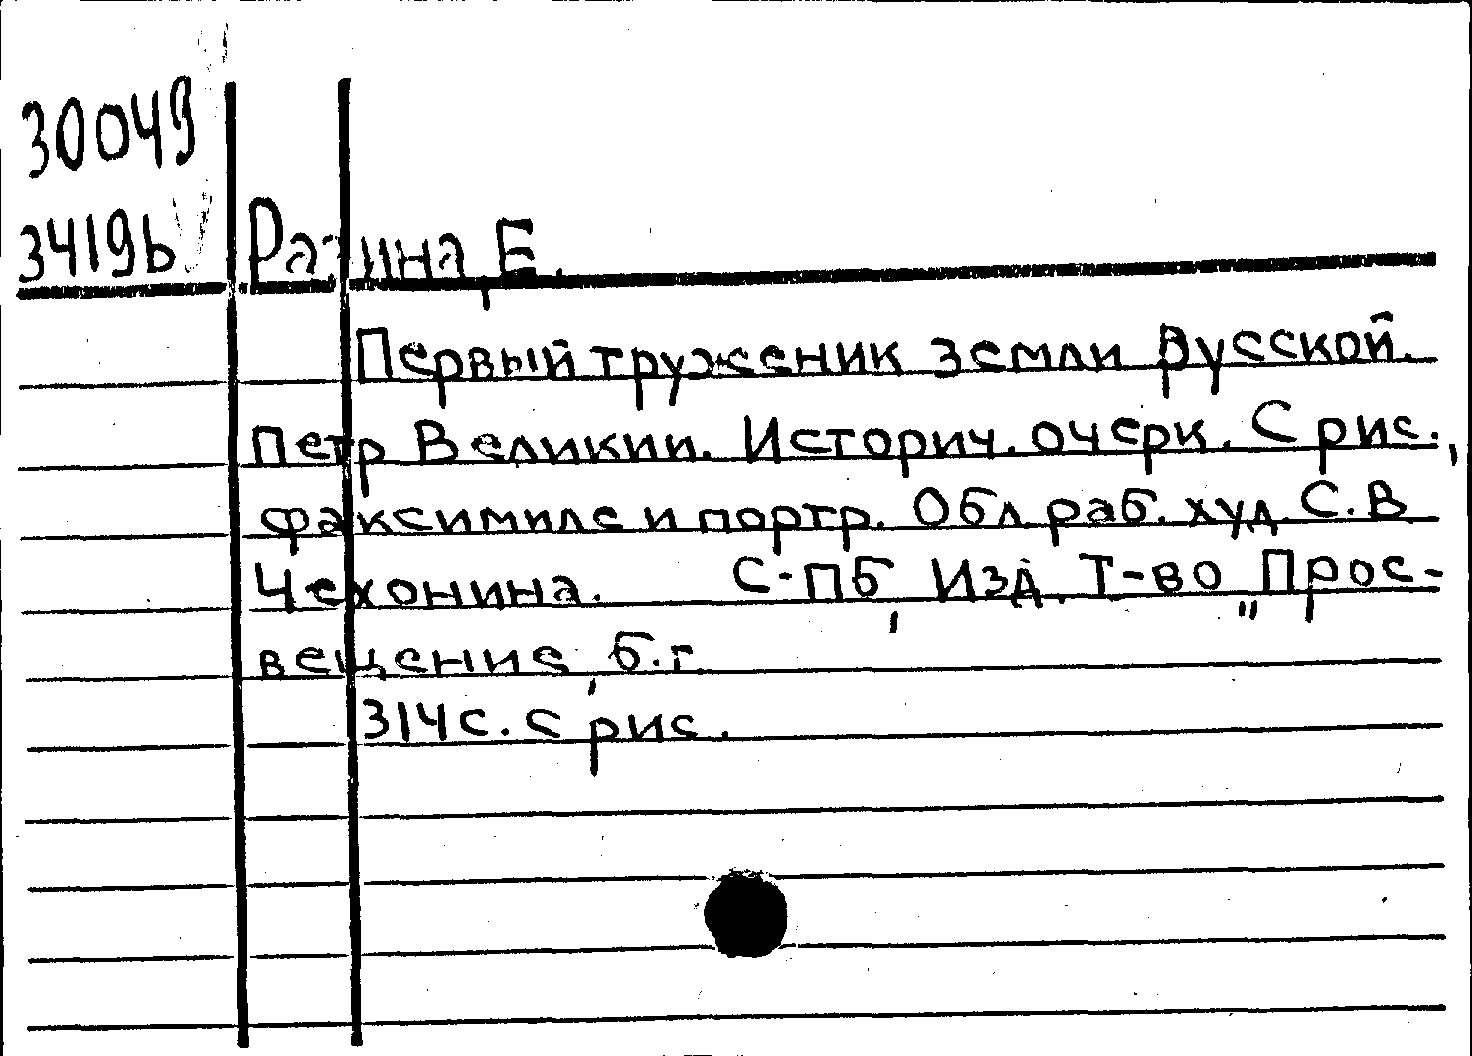 30049
3419b Разина, Е.
Первый труженик земли русской.
Петр Великии. Историч. очерк. С рис.,
факсимиле и портр. Обл раб. худ. С.В.
Чехонина. С-Пб, Изд. Т-во „Прос-
вещение, б.г.
314с. с рис.